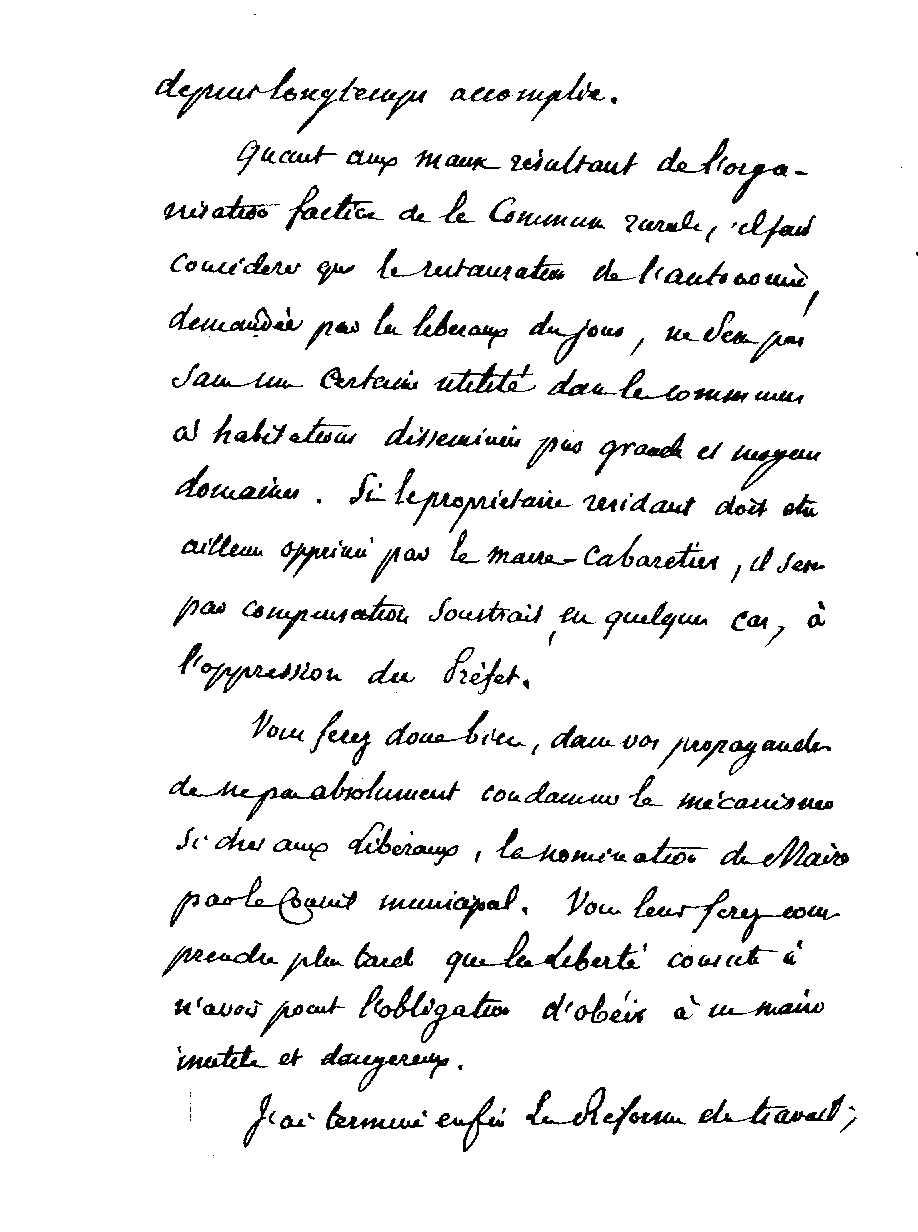 depuis longtemps accomplie.
Quant aux maux résultant de l'orga-
nisation factice de la Commune rurale, il faut
considérer que la restauration de l'autonomie,
demandée par les libéraux du jour, ne sera pas
sans une certaine utilité dans les communes
à habitations disséminées par grands et moyens
domaines. Si le propriétaire résidant doit être
ailleurs opprimé par le maire-Cabaretier, il sera
par compensation soustrait, en quelques cas, à
l'oppression du Préfet.
Vous ferez donc bien, dans vos propagandes
de ne pas absolument condamner le mécanisme
si cher aux Libéraux, la nomination du Maire
par le Conseil municipal. Vous leur ferez com-
prendre plus tard que la Liberté consiste à
n'avoir point l'obligation d'obéir à un maire
inutile et dangereux.
J'ai terminé enfin La Réforme du travail;